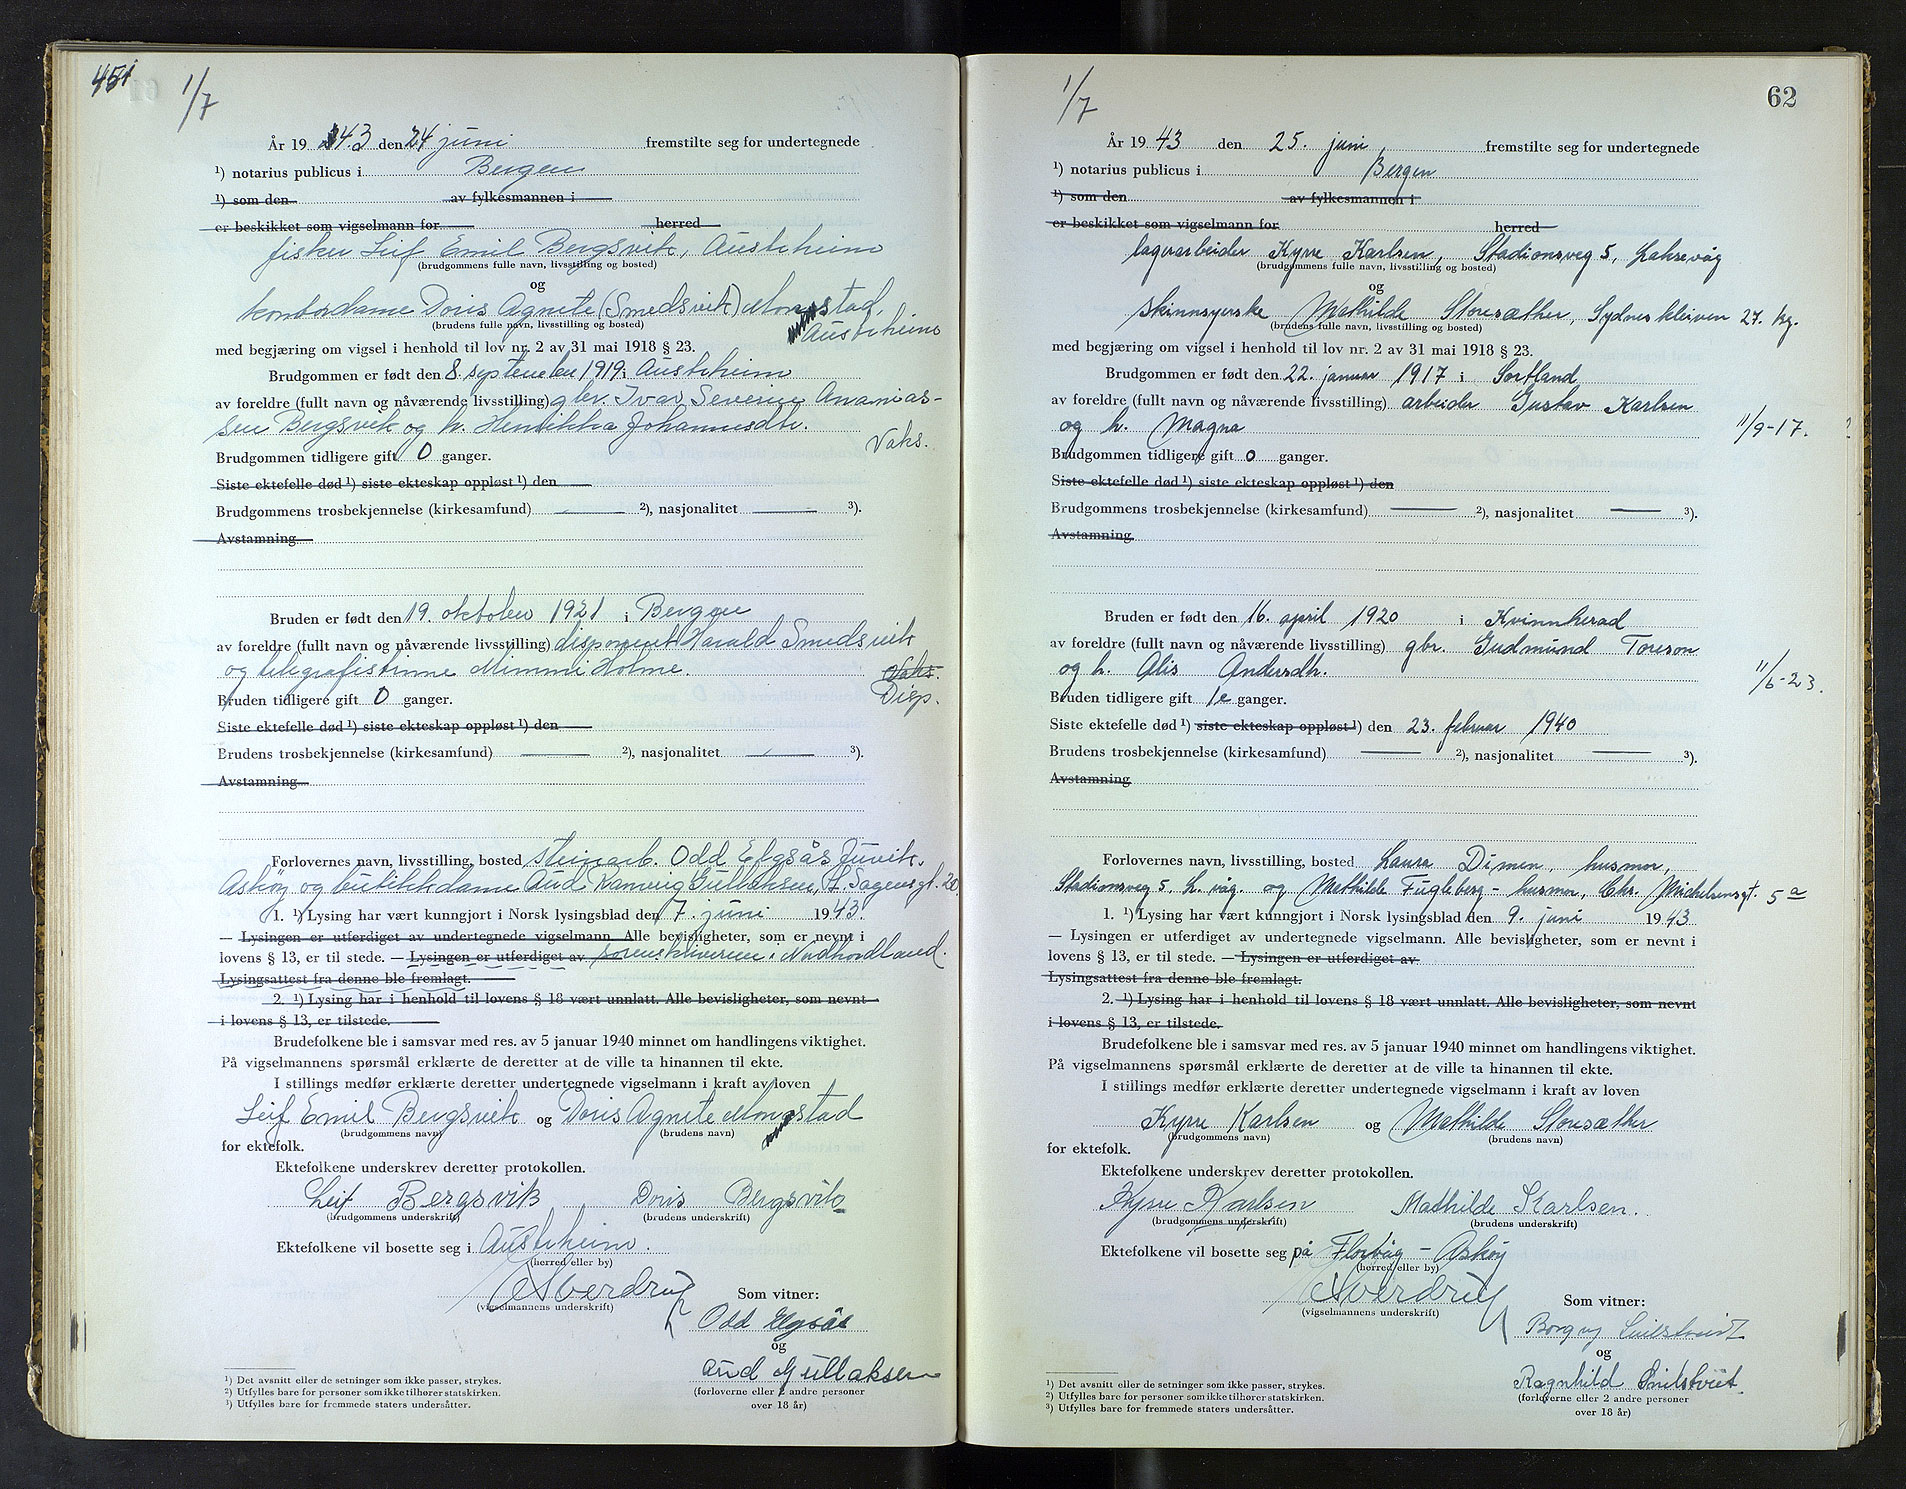 451
1/7
År 1943 den 24 juni fremstilte seg for undertegnede
¹) notarius publicus i Bergen
¹) som den av fylkesmannen i
er beskikket som vigselmann for herred
fisker Leif Emil Bergsvik, Austrheim
(brudgommens fulle navn, livsstilling og bosted)
og
kontordame Doris Agnete (Smedsvik) Mongstad,
(brudens fulle navn, livsstilling og bosted)
Austrheim
med begjæring om vigsel i henhold til lov nr. 2 av 31 mai 1918 § 23.
Brudgommen er født den 8. september 1919 i Austrheim
av foreldre (fullt navn og nåværende livsstilling) gbr. Ivar Severin Ananias-
sen Bergsvik og h. Henrikka Johannesdtr.
Vaks.
Brudgommen tidligere gift 0 ganger.
Siste ektefelle død ¹) siste ekteskap oppløst ¹) den
Brudgommens trosbekjennelse (kirkesamfund) — ²), nasjonalitet — ³).
Avstamning
Bruden er født den 19. oktober 1921 i Bergen
av foreldre (fullt navn og nåværende livsstilling) disponent Harald Smedsvik
og telegrafistinne Mimmi Holme.
Vaks.
Disp.
Bruden tidligere gift 0 ganger.
Siste ektefelle død ¹) siste ekteskap oppløst ¹) den
Brudens trosbekjennelse (kirkesamfund) — ²), nasjonalitet — ³).
Avstamning
Forlovernes navn, livsstilling, bosted steinarb. Odd Elgsås, Juvik,
Askøy og butikkdame Aud Gullaksen, H. Sagensgt. 20
1. ¹) Lysing har vært kunngjort i Norsk lysingsblad den 7. juni 1943.
— Lysingen er utferdiget av undertegnede vigselmann. Alle bevisligheter, som er nevnt i
lovens § 13, er til stede. — Lysingen er utferdiget av sorenskriveren i Nordhordland.
Lysingsattest fra denne ble fremlagt.
2. ¹) Lysing har i henhold til lovens § 18 vært unnlatt. Alle bevisligheter, som nevnt
i lovens § 13, er tilstede.
Brudefolkene ble i samsvar med res. av 5 januar 1940 minnet om handlingens viktighet.
På vigselmannens spørsmål erklærte de deretter at de ville ta hinannen til ekte.
I stillings medfør erklærte deretter undertegnede vigselmann i kraft av loven
Leif Emil Bergsvik og Doris Agnete Mongstad
(brudgommens navn) (brudens navn)
for ektefolk.
Ektefolkene underskrev deretter protokollen.
Leif Bergsvik Doris Bergsvik
(brudgommens underskrift) (brudens underskrift)
Ektefolkene vil bosette seg i Austrheim.
(herred eller by)
Sverdrup
(vigselmannens underskrift)
Som vitner:
Odd Elgsås
og
Aud Gullaksen
(forloverne eller 2 andre personer
over 18 år)
¹) Det avsnitt eller de setninger som ikke passer, strykes.
²) Utfylles bare for personer som ikke tilhører statskirken.
³) Utfylles bare for fremmede staters undersåtter.
1/7
62
År 1943 den 25. juni fremstilte seg for undertegnede
¹) notarius publicus i Bergen
¹) som den av fylkesmannen i
er beskikket som vigselmann for herred
lagerarbeider Kyrre Karlsen, Stadionsveg 5, Laksevåg
(brudgommens fulle navn, livsstilling og bosted)
og
skinnsyerske Mathilde Storesæther, Sydneskleiven 27. bg.
(brudens fulle navn, livsstilling og bosted)
med begjæring om vigsel i henhold til lov nr. 2 av 31 mai 1918 § 23.
Brudgommen er født den 22. januar 1917 i Sortland
av foreldre (fullt navn og nåværende livsstilling) arbeider Gustav Karlsen
og h. Magna
11/9-17.
Brudgommen tidligere gift 0 ganger.
Siste ektefelle død ¹) siste ekteskap oppløst ¹) den
Brudgommens trosbekjennelse (kirkesamfund) — ²), nasjonalitet — ³).
Avstamning
Bruden er født den 16. april 1920 i Kvinnherad
av foreldre (fullt navn og nåværende livsstilling) gbr. Gudmund Toreson
og h. Alis Andersdtr.
11/6-23.
Bruden tidligere gift 1e ganger.
Siste ektefelle død ¹) siste ekteskap oppløst ¹) den 23. februar 1940
Brudens trosbekjennelse (kirkesamfund) — ²), nasjonalitet — ³).
Avstamning
Forlovernes navn, livsstilling, bosted Laura Dimen, husmor,
Stadionsveg 5, L.våg. og Mathilde Fugleberg - husmor, Chr. Michelsensgt. 5a
1. ¹) Lysing har vært kunngjort i Norsk lysingsblad den 9. juni 1943
— Lysingen er utferdiget av undertegnede vigselmann. Alle bevisligheter, som er nevnt i
lovens § 13, er til stede. — Lysingen er utferdiget av
Lysingsattest fra denne ble fremlagt.
2. ¹) Lysing har i henhold til lovens § 18 vært unnlatt. Alle bevisligheter, som nevnt
i lovens § 13, er tilstede.
Brudefolkene ble i samsvar med res. av 5 januar 1940 minnet om handlingens viktighet.
På vigselmannens spørsmål erklærte de deretter at de ville ta hinannen til ekte.
I stillings medfør erklærte deretter undertegnede vigselmann i kraft av loven
Kyrre Karlsen og Mathilde Storesæther
(brudgommens navn) (brudens navn)
for ektefolk.
Ektefolkene underskrev deretter protokollen.
Kyrre Karlsen Mathilde Karlsen.
(brudgommens underskrift) (brudens underskrift)
Ektefolkene vil bosette seg på Florvåg - Askøy
(herred eller by)
Sverdrup
(vigselmannens underskrift)
Som vitner:
Borgny
og
Ragnhild Snilstveit
(forloverne eller 2 andre personer
over 18 år)
¹) Det avsnitt eller de setninger som ikke passer, strykes.
²) Utfylles bare for personer som ikke tilhører statskirken.
³) Utfylles bare for fremmede staters undersåtter.